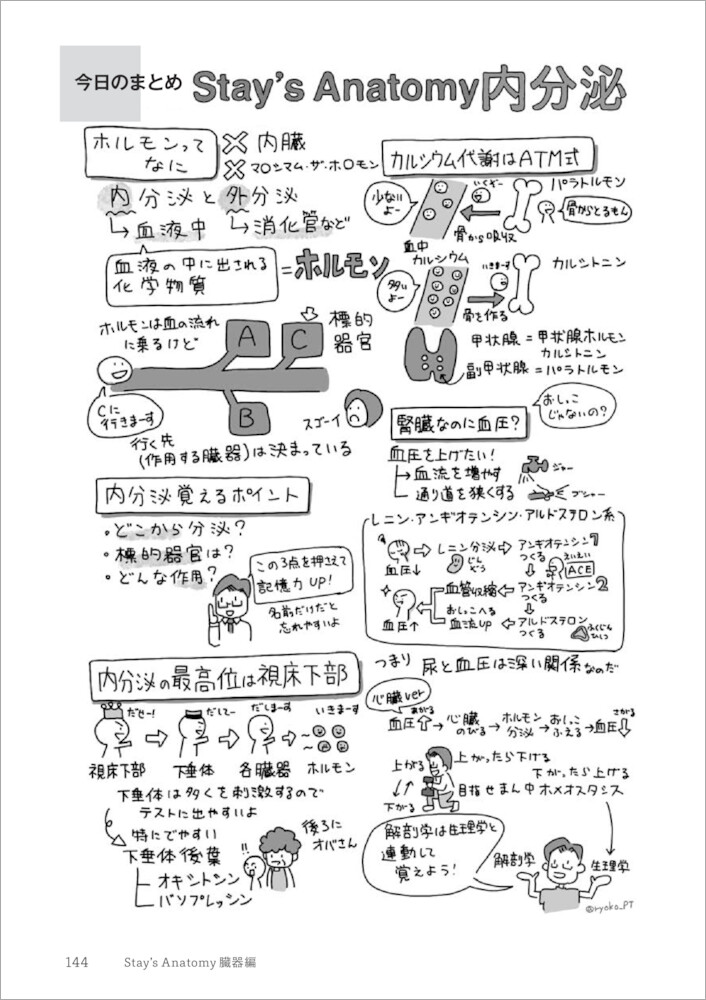 今日のまとめ Stay's Anatomy内分泌
ホルモンって
なに
× 内臓
× マロシマム・ザ・ホロモン
内分泌と外分泌
血液中 消化管など
血液の中に出される
化学物質
=ホルモン
ホルモンは血の流れ
に乗るけど
標的
器官
A C
B
Cに
行きまーす
行く先
(作用する臓器)は決まっている
スゴーイ
内分泌覚えるポイント
・どこから分泌?
・標的器官は?
・どんな作用?
この3点を押さえて
記憶力UP!
名前だけだと
忘れやすいよ
内分泌の最高位は視床下部
だせー! だしてー だしまーす いきまーす
視床下部 下垂体 各臓器 ホルモン
下垂体は多くを刺激するので
テストに出やすいよ
特にでやすい
下垂体後葉
オキシトシン
バソプレッシン
!!
後ろに
オバさん
カルシウム代謝はATM式
少ない
よー
いくぞー
パラトルモン
骨からとるもん
血中
カルシウム
骨から吸収
多い
よー
いきまーす
カルシトニン
骨を作る
甲状腺=甲状腺ホルモン
カルシトニン
副甲状腺=パラトルモン
腎臓なのに血圧?
おしっこ
じゃないの?
血圧を上げたい!
血流を増やす
ジャー
通り道を狭くする
プシャー
レニン・アンギオテンシン・アルドステロン系
血圧↓
レニン分泌
じん
ぞう
アンギオテンシン1
つくる
えいえい
ACE
アンギオテンシン2
つくる
血管収縮
おしっこへる
血流UP
血圧↑
アルドステロン
つくる
ふくじん
ひしつ
つまり 尿と血圧は深い関係なのだ
心臓ver
あがる
血圧↑→心臓
のびる→ホルモン
分泌→おしっこ
ふえる→血圧↓
さがる
上がる
下がる
上がったら下げる
下がったら上げる
目指せまん中ホメオスタシス
解剖学は生理学と
連動して
覚えよう!
解剖学
生理学
@ryoko_PT
144 Stay's Anatomy 臓器編